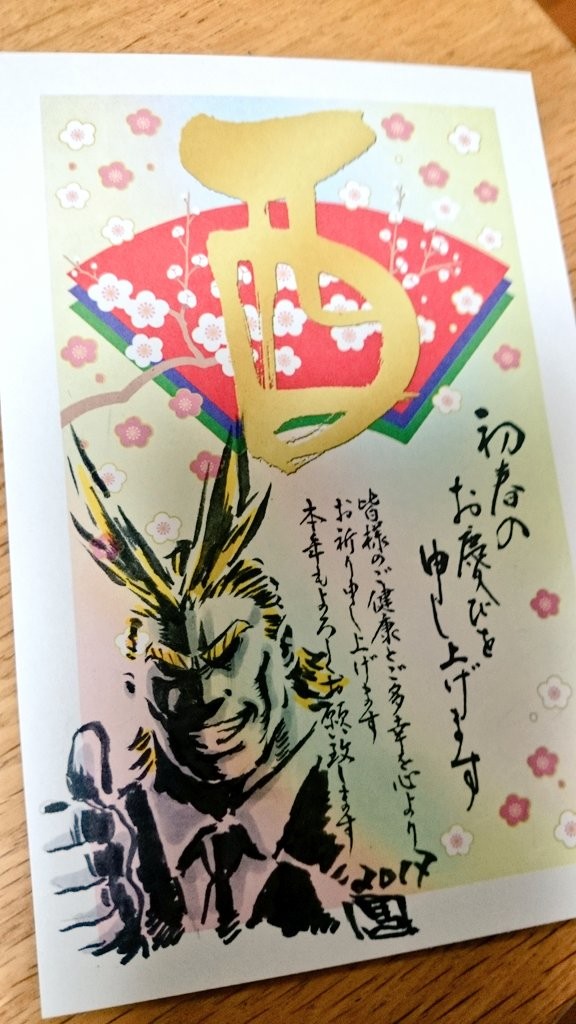 酉
初春の
お慶びを
申し上げます
皆様のご健康とご多幸を心より
お祈り申し上げます
本年もよろしくお願い致します
2017